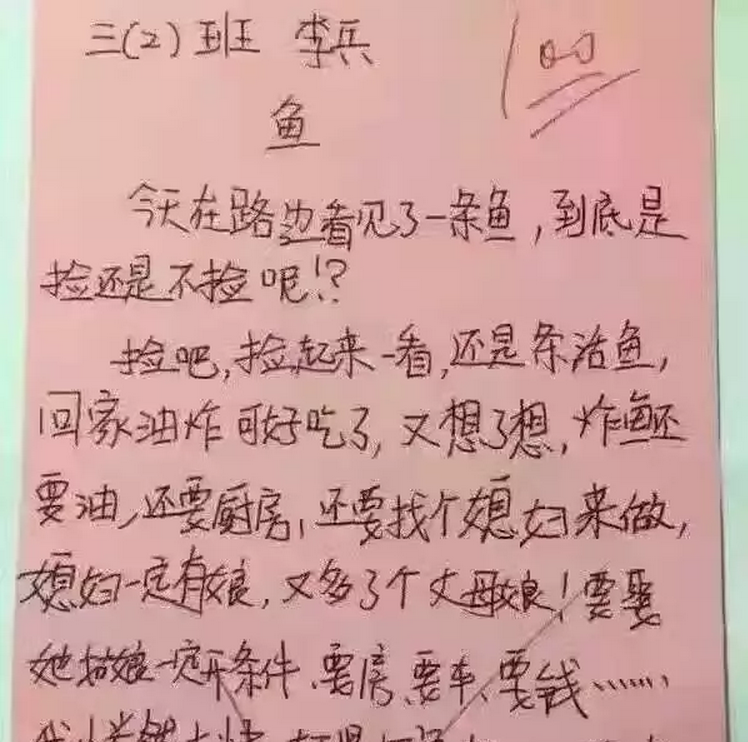 三(2)班 李兵
100
鱼
今天在路边看见了一条鱼,到底是
捡还是不捡呢!?
捡吧,捡起来一看,还是条活鱼,
回家油炸可好吃了,又想了想,炸鱼还
要油,还要厨房,还要找个媳妇来做,
媳妇一定有娘,又多了个丈母娘!要娶
她姑娘一定开条件、要房、要车、要钱……